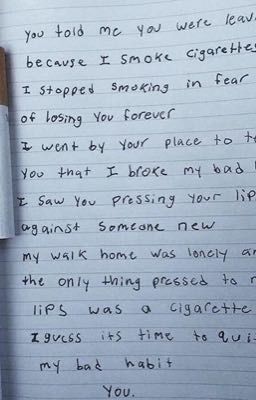 you told me you were leav
because I smoke cigarettes
I stopped smoking in fear
of losing you forever
I went by your place to t
you that I broke my bad
I saw you pressing your lip
against someone new
my walk home was lonely an
the only thing pressed to
lips was a cigarette
I guess its time to qui
my bad habit
you.